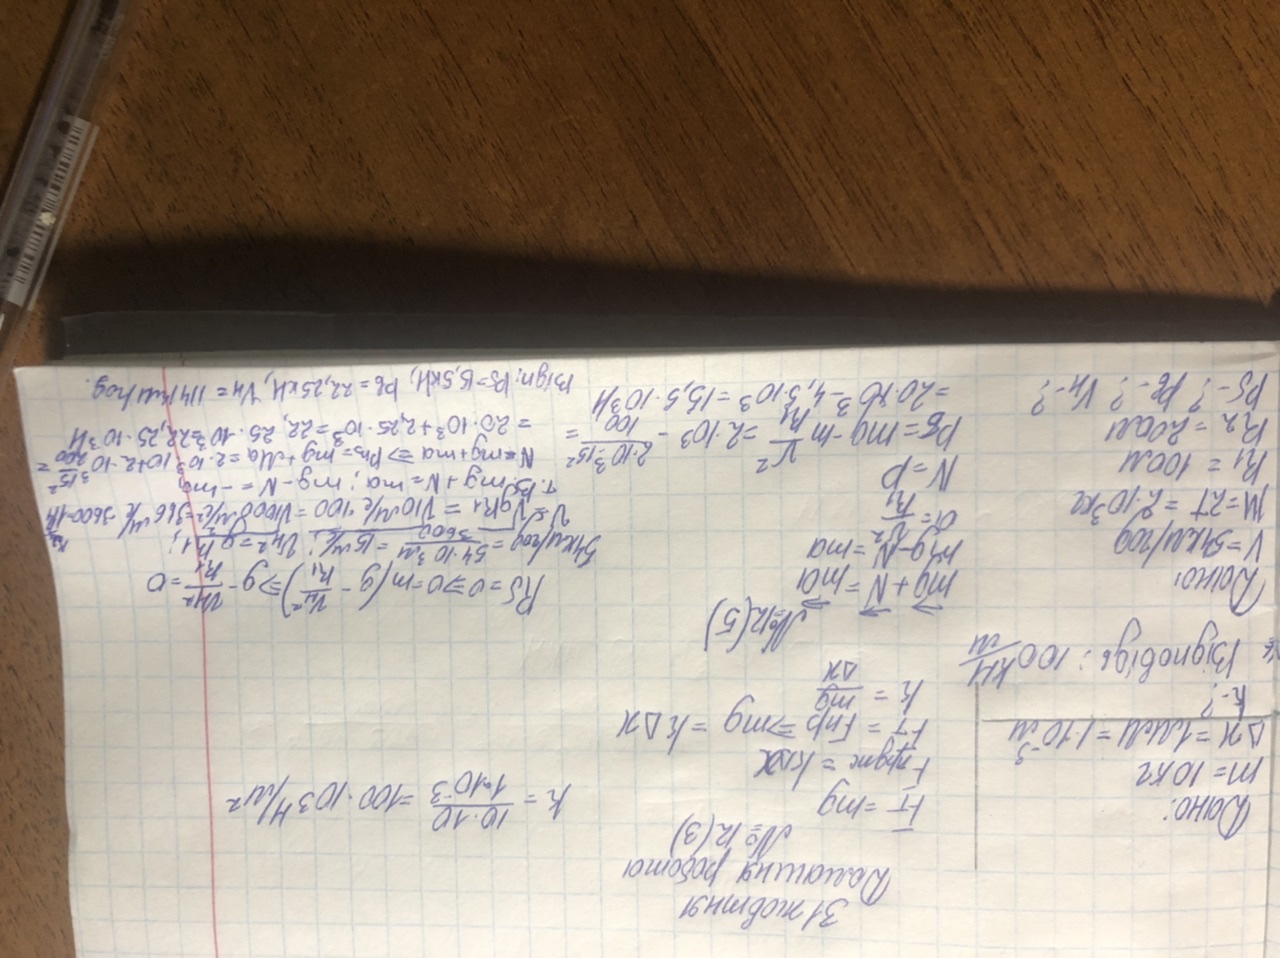 31 жовтня
Домашня робота
№12(3)
Дано:
m = 10 кг
Δx = 1 мм = 1·10⁻³ м
k - ?
Fт = mg
Fпруж = kΔx
Fт = Fпр ⇒ mg = kΔx
k = mg/Δx
k = 10·10/1·10⁻³ = 100·10³ Н/м²
Відповідь: 100 кН/м
№12(5)
Дано:
V = 54 км/год
M = 2т = 2·10³ кг
R1 = 100 м
R2 = 200 м
Pб - ? Pв - ? Vн - ?
mg + N = ma
mg - N = ma
a = V²/R1
N = P
Pб = mg - m V²/R1 = 2·10³ - 2·10³·15²/100 =
= 20·10³ - 4,5·10³ = 15,5·10³ Н
Pб = 0 ⇒ 0 = m(g - Vн²/R1) ⇒ g - Vн²/R1 = 0
54 км/год = 54·10³ м/3600 = 15 м/с; Vн² = g R1;
V = √gR1 = √10 м/с 100 = √1000
т.В: mg + N = ma; mg - N = - ma
N = mg + ma ⇒ Pв = mg + Ma = 2·10³·10 + 2·10³ 15²/200 =
= 20·10³ + 2,25·10³ = 22,25·10³ = 22,25·10³ Н
Відп: Pб = 15,5 кН, Pв = 22,25 кН, Vн = 114 км/год.